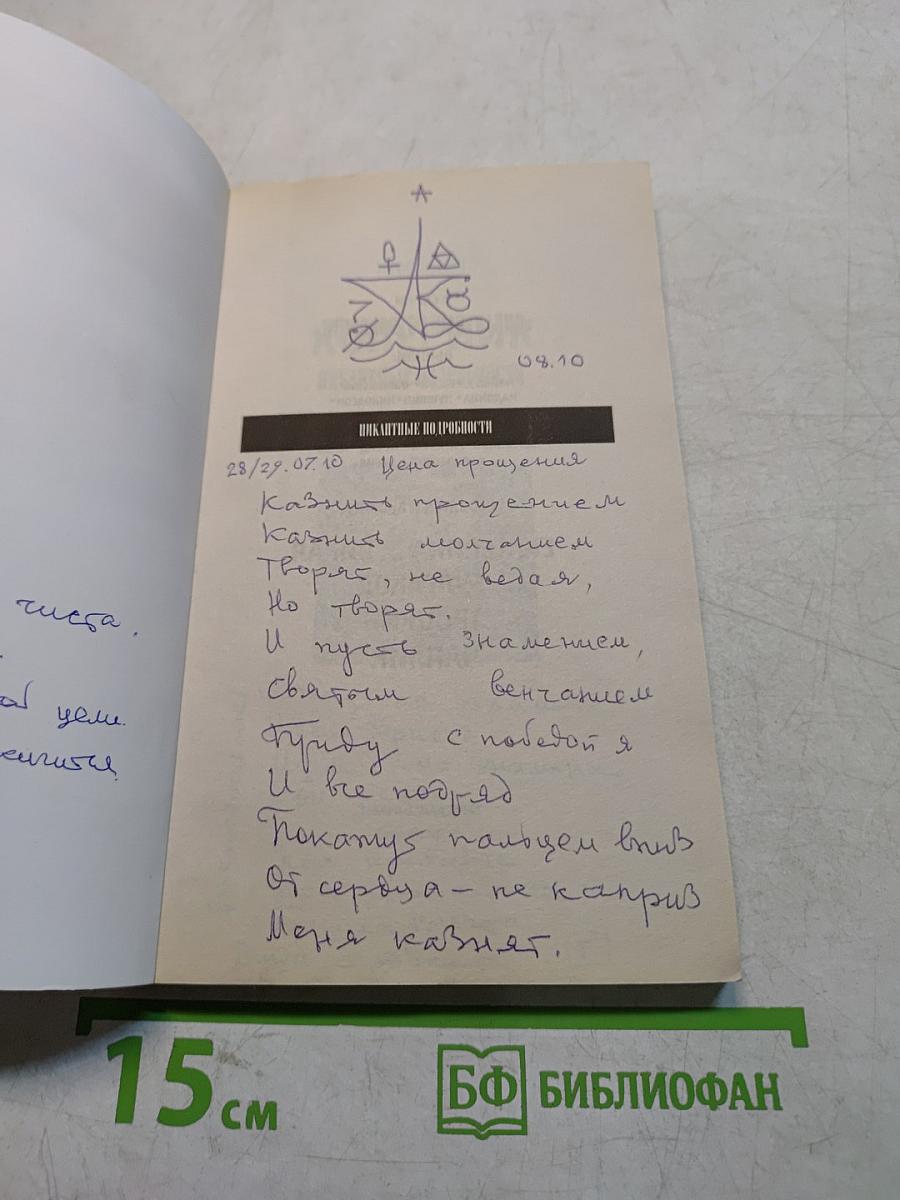 чиста.
цели
08.10
ПИКАНТНЫЕ ПОДРОБНОСТИ
28/29.07.10 Цена прощения
Казнить прощением
Казнить молчанием
Творят, не ведая,
Но творят.
И пусть знамением,
Святым венчанием
Приду с победой я
И все подряд
Покажут пальцем вниз
От сердца – не каприз
Меня казнят.
15 см
БФ БИБЛИОФАН